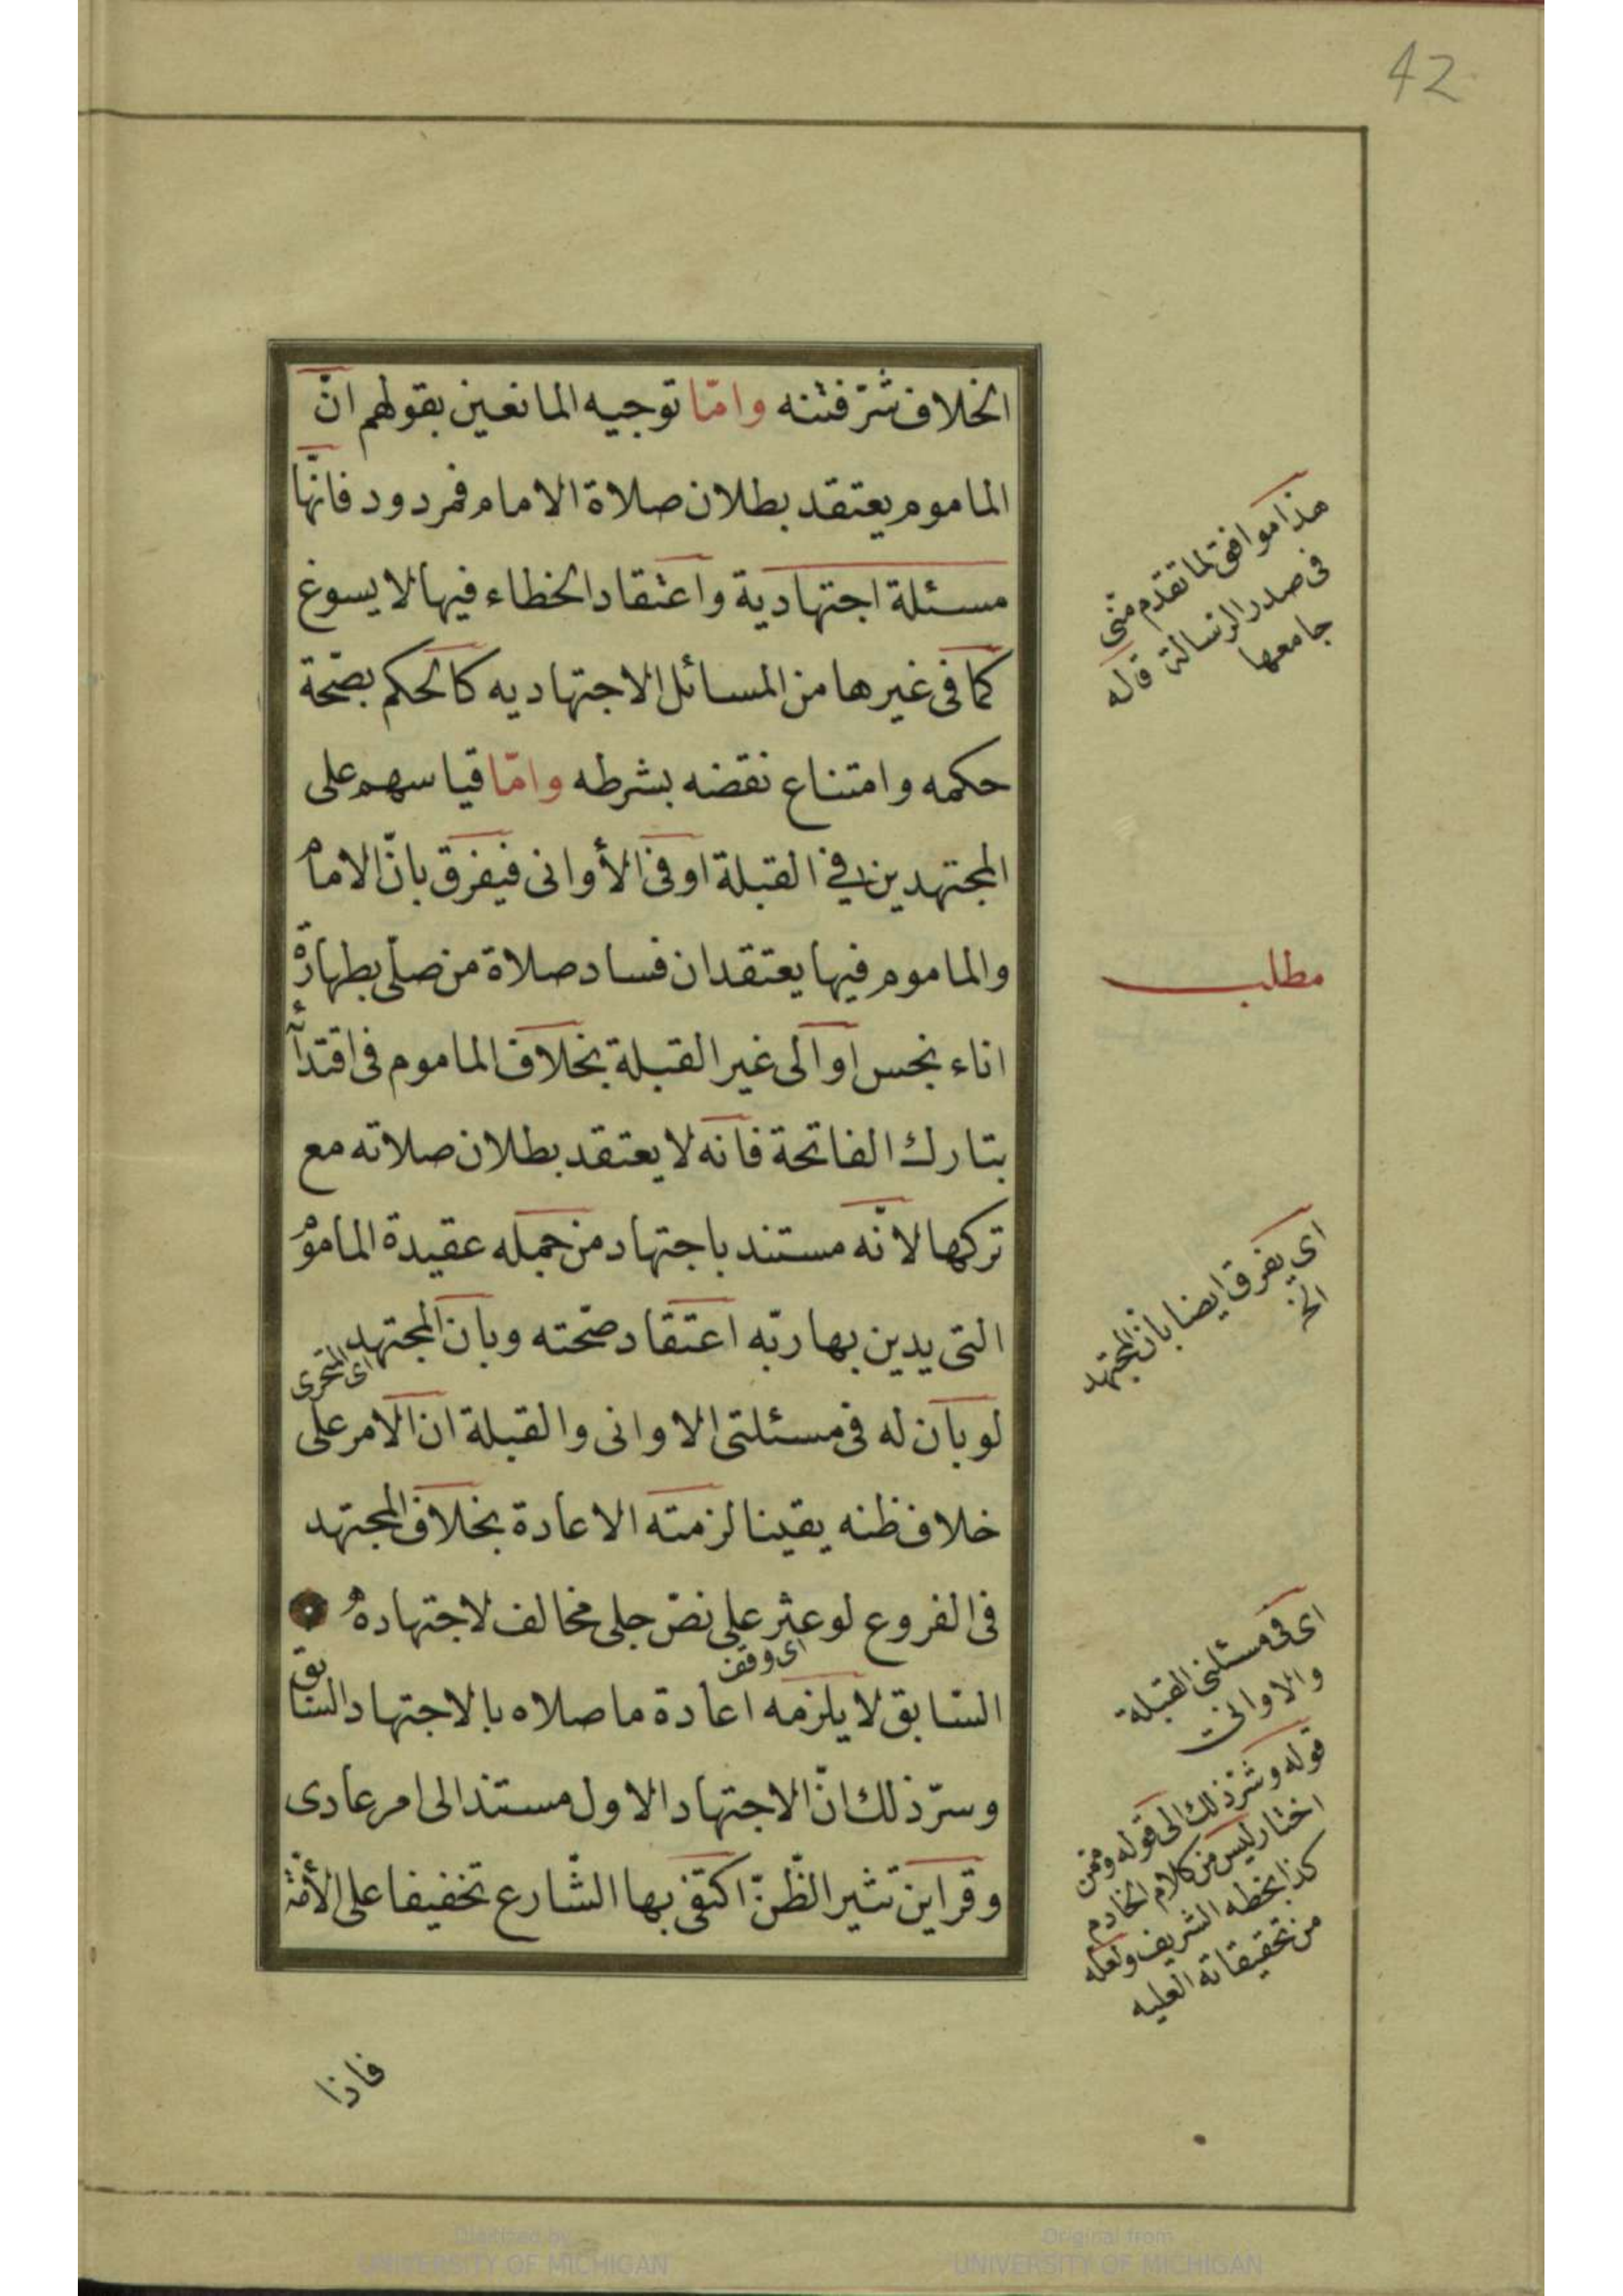 42
الخلاف شرّ فتنه وامّا توجيه المانعين بقولهم انّ
الماموم يعتقد بطلان صلاة الامام فمردود فانّها
مسئلة اجتهادية واعتقاد الخطاء فيها لا يسوغ
كما فى غيرها من المسائل الاجتهاديه كالحكم بصّحة
حكمه وامتناع نقضه بشرطه وامّا قياسهم على
المجتهدين فى القبلة او فى الأوانى فيفرق بانّ الامام
والماموم فيها يعتقدان فساد صلاة من صلّى بطهارة
اناء نجس او الى غير القبلة بخلاف الماموم فى اقتدأ
بتارك الفاتحة فانه لا يعتقد بطلان صلاته مع
تركها لانّه مستند باجتهاد من جمله عقيدة الماموم
التى يدين بها ربّه اعتقاد صحّته وبان المجتهد
اى المتحرى
لو بان له فى مسئلتى الاوانى والقبلة ان الامر على
خلاف ظنه يقينا لزمته الاعادة بخلاف المجتهد
فى الفروع لو عثر على نصّ جلى مخالف لاجتهاده
اى وقف
السّابق لا يلزمه اعادة ما صلاه بالاجتهاد السّابق
وسرّ ذلك انّ الاجتهاد الاول مستند الى امر عادى
وقراين تثير الظّنّ اكتفى بها الشّارع تخفيفا على الأمّة
فاذا
هذا موافق لما تقدم منّى
فى صدر الرسالة قاله
جامعها
مطلب
اى يفرق ايضا بان المجتهد
الخ
اى فى مسئلتى القبلة
والاوانى
قوله وسرّ ذلك الى قوله وممن
اختار ليس من كلام الخادم
كذا بخطه الشريف ولعله
من تحقيقاته العليه
Digitized by
UNIVERSITY OF MICHIGAN
Original from
UNIVERSITY OF MICHIGAN